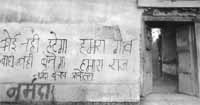 कोई नहीं हटेगा हमारा गाँव
बांध नहीं बनेगा हमारा राज
नर्मदा